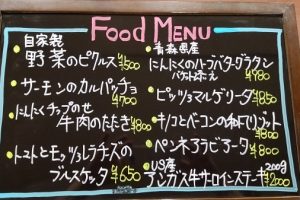 Food MENU
自家製
野菜のピクルス ¥500
サーモンのカルパッチョ
¥700
にんにくチップのせ
牛肉のたたき ¥800
トマトとモッツァレラチーズの
ブルスケッタ ¥650
青森県産
にんにくのハーブバターグラタン
バケット添え ¥980
ピッツァマルゲリータ ¥850
キノコとベーコンの和風リゾット
¥800
ペンネアラビアータ
¥800
US産 200g
アンガス牛サーロインステーキ
¥2000